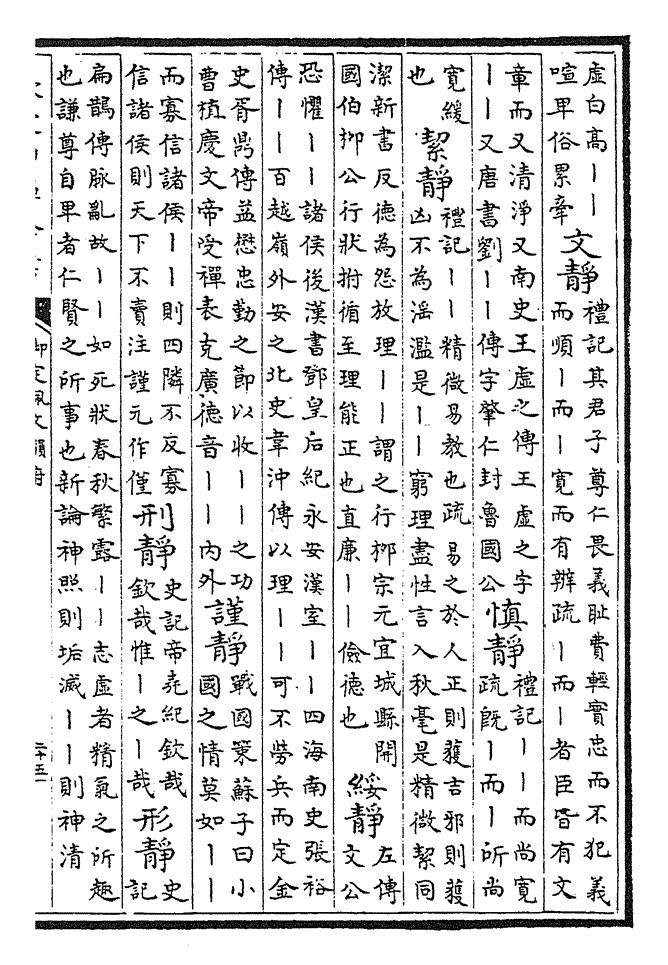 虛白高丨丨
喧卑俗累牽
文靜
禮記其君子尊仁畏義耻費輕實忠而不犯義
而順丨而丨寬而有辨疏丨而丨者臣皆有文
章而又清淨又南史王虛之傳王虛之字
丨丨又唐書劉丨丨傳字肇仁封魯國公
慎靜
禮記丨丨而尚寬
疏旣丨而丨所尚
寬緩
也
絜靜
禮記丨丨精微易教也疏易之於人正則獲吉邪則獲
凶不為滛濫是丨丨窮理盡性言入秋毫是精微絜同
潔新書反德為怨放理丨丨謂之行栁宗元宜城縣開
國伯栁公行狀拊循至理能正也直廉丨丨儉德也
綏靜
左傳
文公
恐懼丨丨諸侯後漢書鄧皇后紀永安漢室丨丨四海南史張裕
傳丨丨百越嶺外安之北史韋沖傳以理丨丨可不勞兵而定金
史胥鼎傳益懋忠勤之節以收丨丨之功
曹植慶文帝受禪表克廣德音丨丨內外
謹靜
戰國策蘇子曰小
國之情莫如丨丨
而寡信諸侯丨丨則四隣不反寡
信諸侯則天下不賣注謹元作僅
刑靜
史記帝堯紀欽哉
欽哉惟丨之丨哉
形靜
史
記
扁鵲傳脉亂故丨丨如死狀春秋繁露丨丨志虛者精氣之所趣
也謙尊自卑者仁賢之所事也新論神照則垢滅丨丨則神清
御定佩文韻府